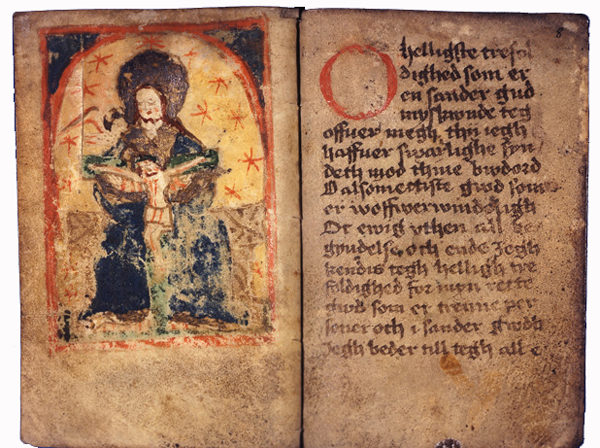 O helligste trefol
dighed som er
en sander gud
myskwnde teg
offuer megh thij iegh
haffuer swarlighe syn
deth mod thine bwdord
O alsomectiste gwd som
er woffwerwindeligh
Oc ewig vthen all be
gyndelse och ende Jegh
kendis tegh helligh tre
foldighed for myn rette
gwd som er trenne per
soner och i sander gwdh
Jegh beder till tegh all e
8